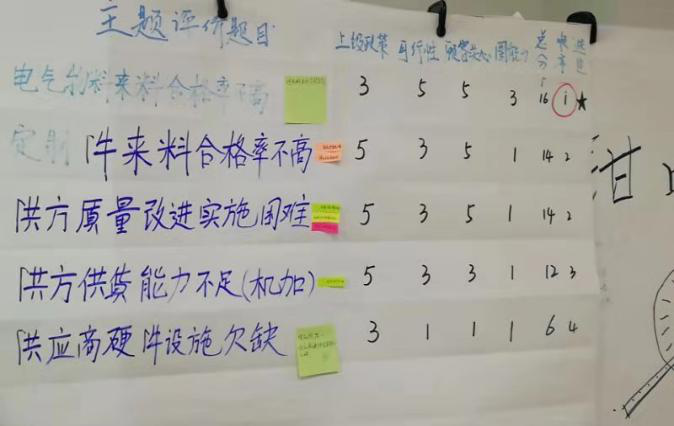 主题评价题目 上级政策 可行性 顾客关心 圈能力 总分 顺序 选定
电气例料来料合格率不高 3 5 5 3 16 1 ★
定制件来料合格率不高 5 3 5 1 14 2
供方质量改进实施困难 5 3 5 1 14 2
供方供货能力不足(机加) 5 3 3 1 12 3
供应商硬件设施欠缺 3 1 1 1 6 4